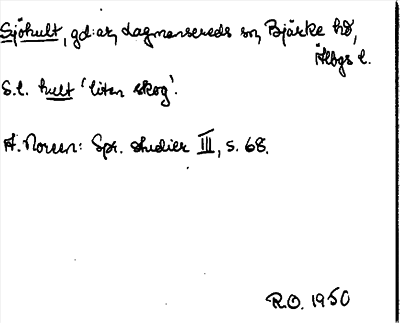 Sjöhult, gd:ar, Lagmansereds sn, Bjärke hd,
Älbgs l.
S.l. hult 'liten skog'.
A. Noreen: Spr. studier III, s. 68.
R.O. 1950